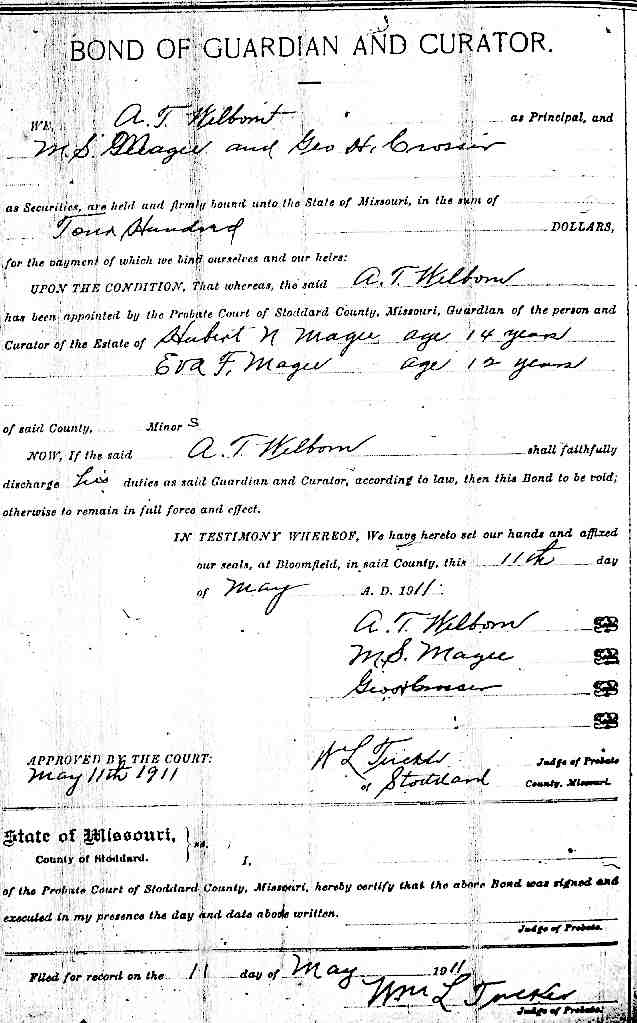 BOND OF GUARDIAN AND CURATOR.
WE, A. T. Welborn as Principal, and
M. S. Magee and Geo H. Crosser
as Securities, are held and firmly bound unto the State of Missouri, in the sum of
Four Hundred DOLLARS,
for the payment of which we bind ourselves and our heirs:
UPON THE CONDITION, That whereas, the said A. T. Welborn
has been appointed by the Probate Court of Stoddard County, Missouri, Guardian of the person and
Curator of the Estate of Hubert N Magee age 14 years
Eva F. Magee age 12 years
of said County, Minor S
NOW, If the said A. T. Welborn shall faithfully
discharge his duties as said Guardian and Curator, according to law, then this Bond to be void;
otherwise to remain in full force and effect.
IN TESTIMONY WHEREOF, We have hereto set our hands and affixed
our seals, at Bloomfield, in said County, this 11th day
of May A. D. 1911.
A. T. Welborn
M. S. Magee
Geo H Crosser
APPROVED BY THE COURT: Wm L Tucker Judge of Probate
May 11th 1911 of Stoddard County, Missouri.
State of Missouri,
County of Stoddard. } ss. I,
of the Probate Court of Stoddard County, Missouri, hereby certify that the above Bond was signed and
executed in my presence the day and date above written.
Judge of Probate.
Filed for record on the 11 day of May 1911
Wm L Tucker
Judge of Probate.